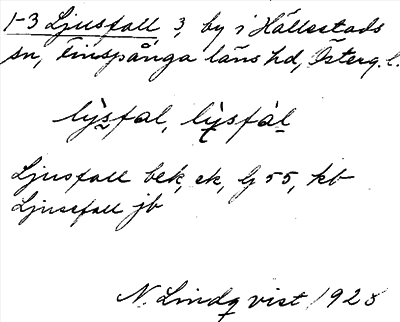 1-3 Ljusfall 3, by i Hällestads
sn, Finspånga läns hd, Österg. l.
lỳsfal, lỳsfàl
Ljusfall bek, ek, Gj 55, kb
Ljusefall jb
N. Lindqvist 1925